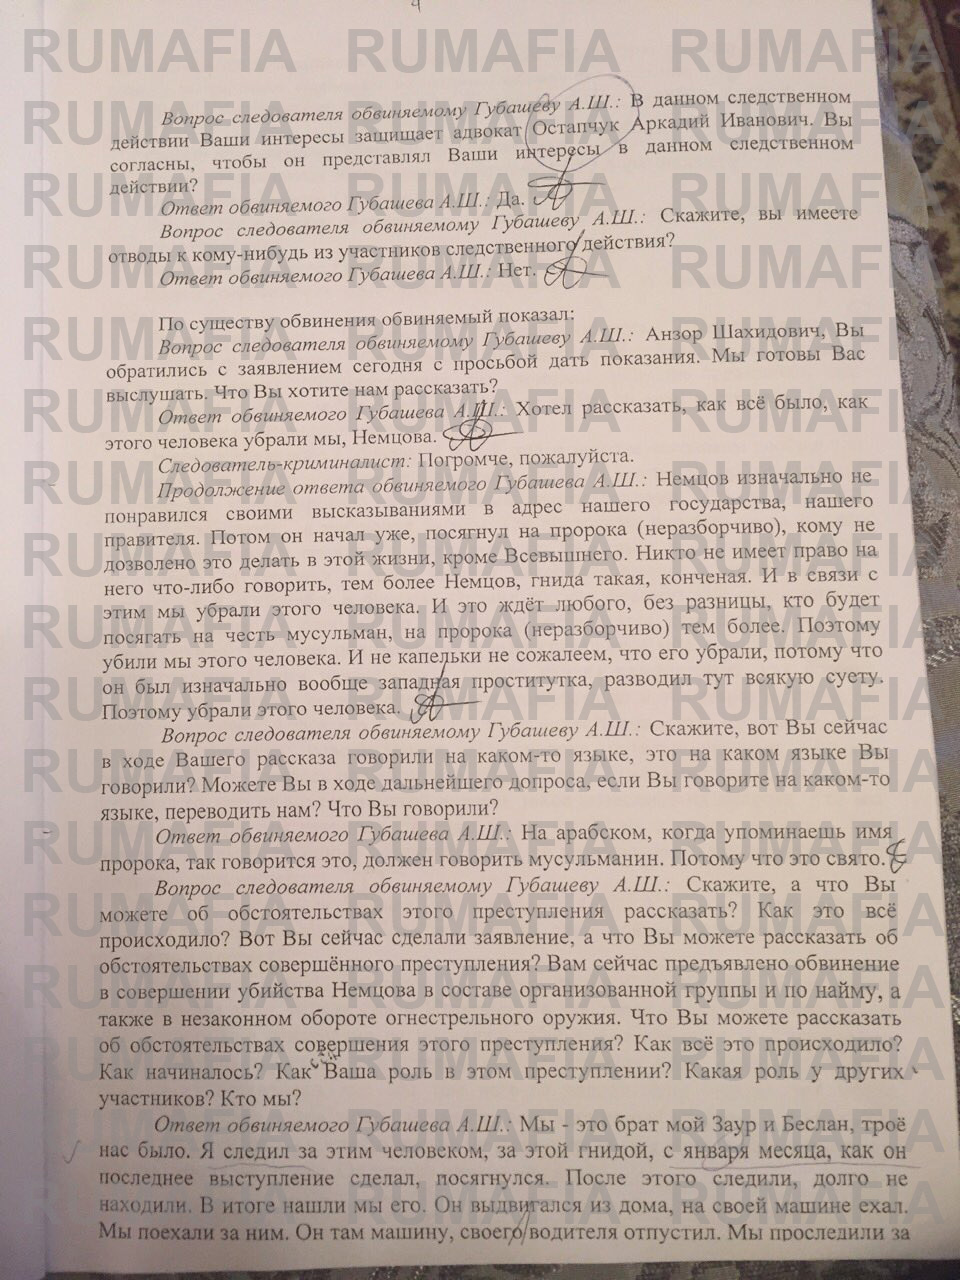 Вопрос следователя обвиняемому Губашеву А.Ш.: В данном следственном
действии Ваши интересы защищает адвокат Остапчук Аркадий Иванович. Вы
согласны, чтобы он представлял Ваши интересы в данном следственном
действии?
Ответ обвиняемого Губашева А.Ш.: Да.
Вопрос следователя обвиняемому Губашеву А.Ш.: Скажите, вы имеете
отводы к кому-нибудь из участников следственного действия?
Ответ обвиняемого Губашева А.Ш.: Нет.
По существу обвинения обвиняемый показал:
Вопрос следователя обвиняемому Губашеву А.Ш.: Анзор Шахидович, Вы
обратились с заявлением сегодня с просьбой дать показания. Мы готовы Вас
выслушать. Что Вы хотите нам рассказать?
Ответ обвиняемого Губашева А.Ш.: Хотел рассказать, как всё было, как
этого человека убрали мы, Немцова.
Следователь-криминалист: Погромче, пожалуйста.
Продолжение ответа обвиняемого Губашева А.Ш.: Немцов изначально не
понравился своими высказываниями в адрес нашего государства, нашего
правителя. Потом он начал уже, посягнул на пророка (неразборчиво), кому не
дозволено это делать в этой жизни, кроме Всевышнего. Никто не имеет право на
него что-либо говорить, тем более Немцов, гнида такая, конченая. И в связи с
этим мы убрали этого человека. И это ждёт любого, без разницы, кто будет
посягать на честь мусульман, на пророка (неразборчиво) тем более. Поэтому
убили мы этого человека. И не капельки не сожалеем, что его убрали, потому что
он был изначально вообще западная проститутка, разводил тут всякую суету.
Поэтому убрали этого человека.
Вопрос следователя обвиняемому Губашеву А.Ш.: Скажите, вот Вы сейчас
в ходе Вашего рассказа говорили на каком-то языке, это на каком языке Вы
говорили? Можете Вы в ходе дальнейшего допроса, если Вы говорите на каком-то
языке, переводить нам? Что Вы говорили?
Ответ обвиняемого Губашева А.Ш.: На арабском, когда упоминаешь имя
пророка, так говорится это, должен говорить мусульманин. Потому что это свято.
Вопрос следователя обвиняемому Губашеву А.Ш.: Скажите, а что Вы
можете об обстоятельствах этого преступления рассказать? Как это всё
происходило? Вот Вы сейчас сделали заявление, а что Вы можете рассказать об
обстоятельствах совершённого преступления? Вам сейчас предъявлено обвинение
в совершении убийства Немцова в составе организованной группы и по найму, а
также в незаконном обороте огнестрельного оружия. Что Вы можете рассказать
об обстоятельствах совершения этого преступления? Как всё это происходило?
Как начиналось? Как Ваша роль в этом преступлении? Какая роль у других
участников? Кто мы?
Ответ обвиняемого Губашева А.Ш.: Мы - это брат мой Заур и Беслан, троё
нас было. Я следил за этим человеком, за этой гнидой, с января месяца, как он
последнее выступление сделал, посягнулся. После этого следили, долго не
находили. В итоге нашли мы его. Он выдвигался из дома, на своей машине ехал.
Мы поехали за ним. Он там машину, своего водителя отпустил. Мы проследили за
RUMAFIA